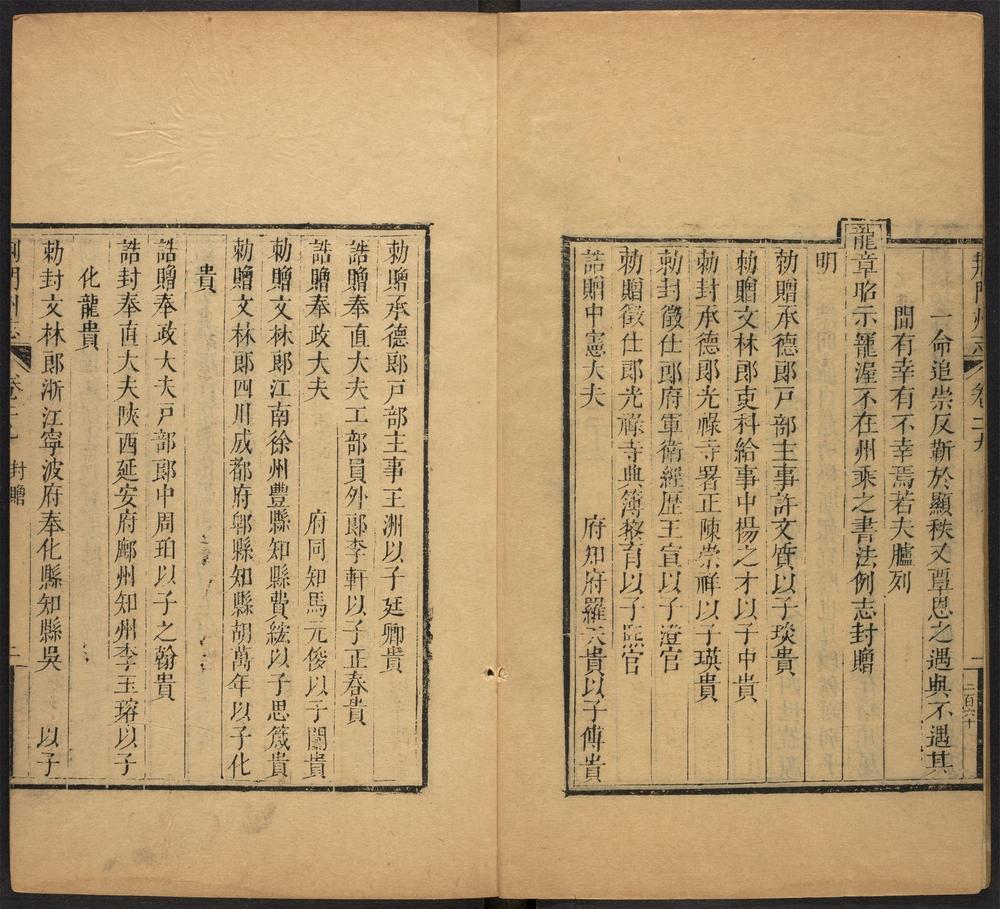 荆門州志 卷二十九 一 二百六十
一命追崇反靳於顯秩又覃恩之遇與不遇其
間有幸有不幸焉若夫臚列
龍章昭示寵渥不在州乘之書法例志封贈
明
勅贈承德郎戸部主事許文質以子琰貴
勅贈文林郎吏科給事中楊之才以子中貴
勅封承德郎光祿寺署正陳崇祥以子瑛貴
勅封徵仕郎府軍衛經歷王宣以子澄官
勅贈徵仕郎光祿寺典簿黎育以子熙官
誥贈中憲大夫 府知府羅天貴以子傅貴
勅贈承德郎戸部主事王洲以子廷卿貴
誥贈奉直大夫工部員外郎李軒以子正春貴
誥贈奉政大夫 府同知馬元俊以子闓貴
勅贈文林郎江南徐州豐縣知縣費絃以子思箴貴
勅贈文林郎四川成都府郫縣知縣胡萬年以子化
貴
誥贈奉政大夫戸部郎中周珀以子之翰貴
誥封奉直大夫陝西延安府鄜州知州李玉瑢以子
化龍貴
勅封文林郎浙江寧波府奉化縣知縣吳 以子
荆門州志 卷二十九 封贈 二